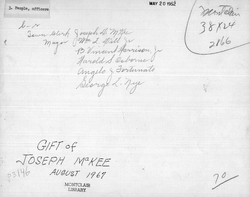 2. People, offices
MAY 20 1962
Montclair
38 X 24
2166
Town Clerk Joseph D. McKee
Mayor Wm L. Hill Jr
B Vincent Harrison, Jr
Harold S. Osborne
Angelo J Fortunato
George L. Nye
GIFT of
JOSEPH McKEE
AUGUST 1967
MONTCLAIR
LIBRARY
70